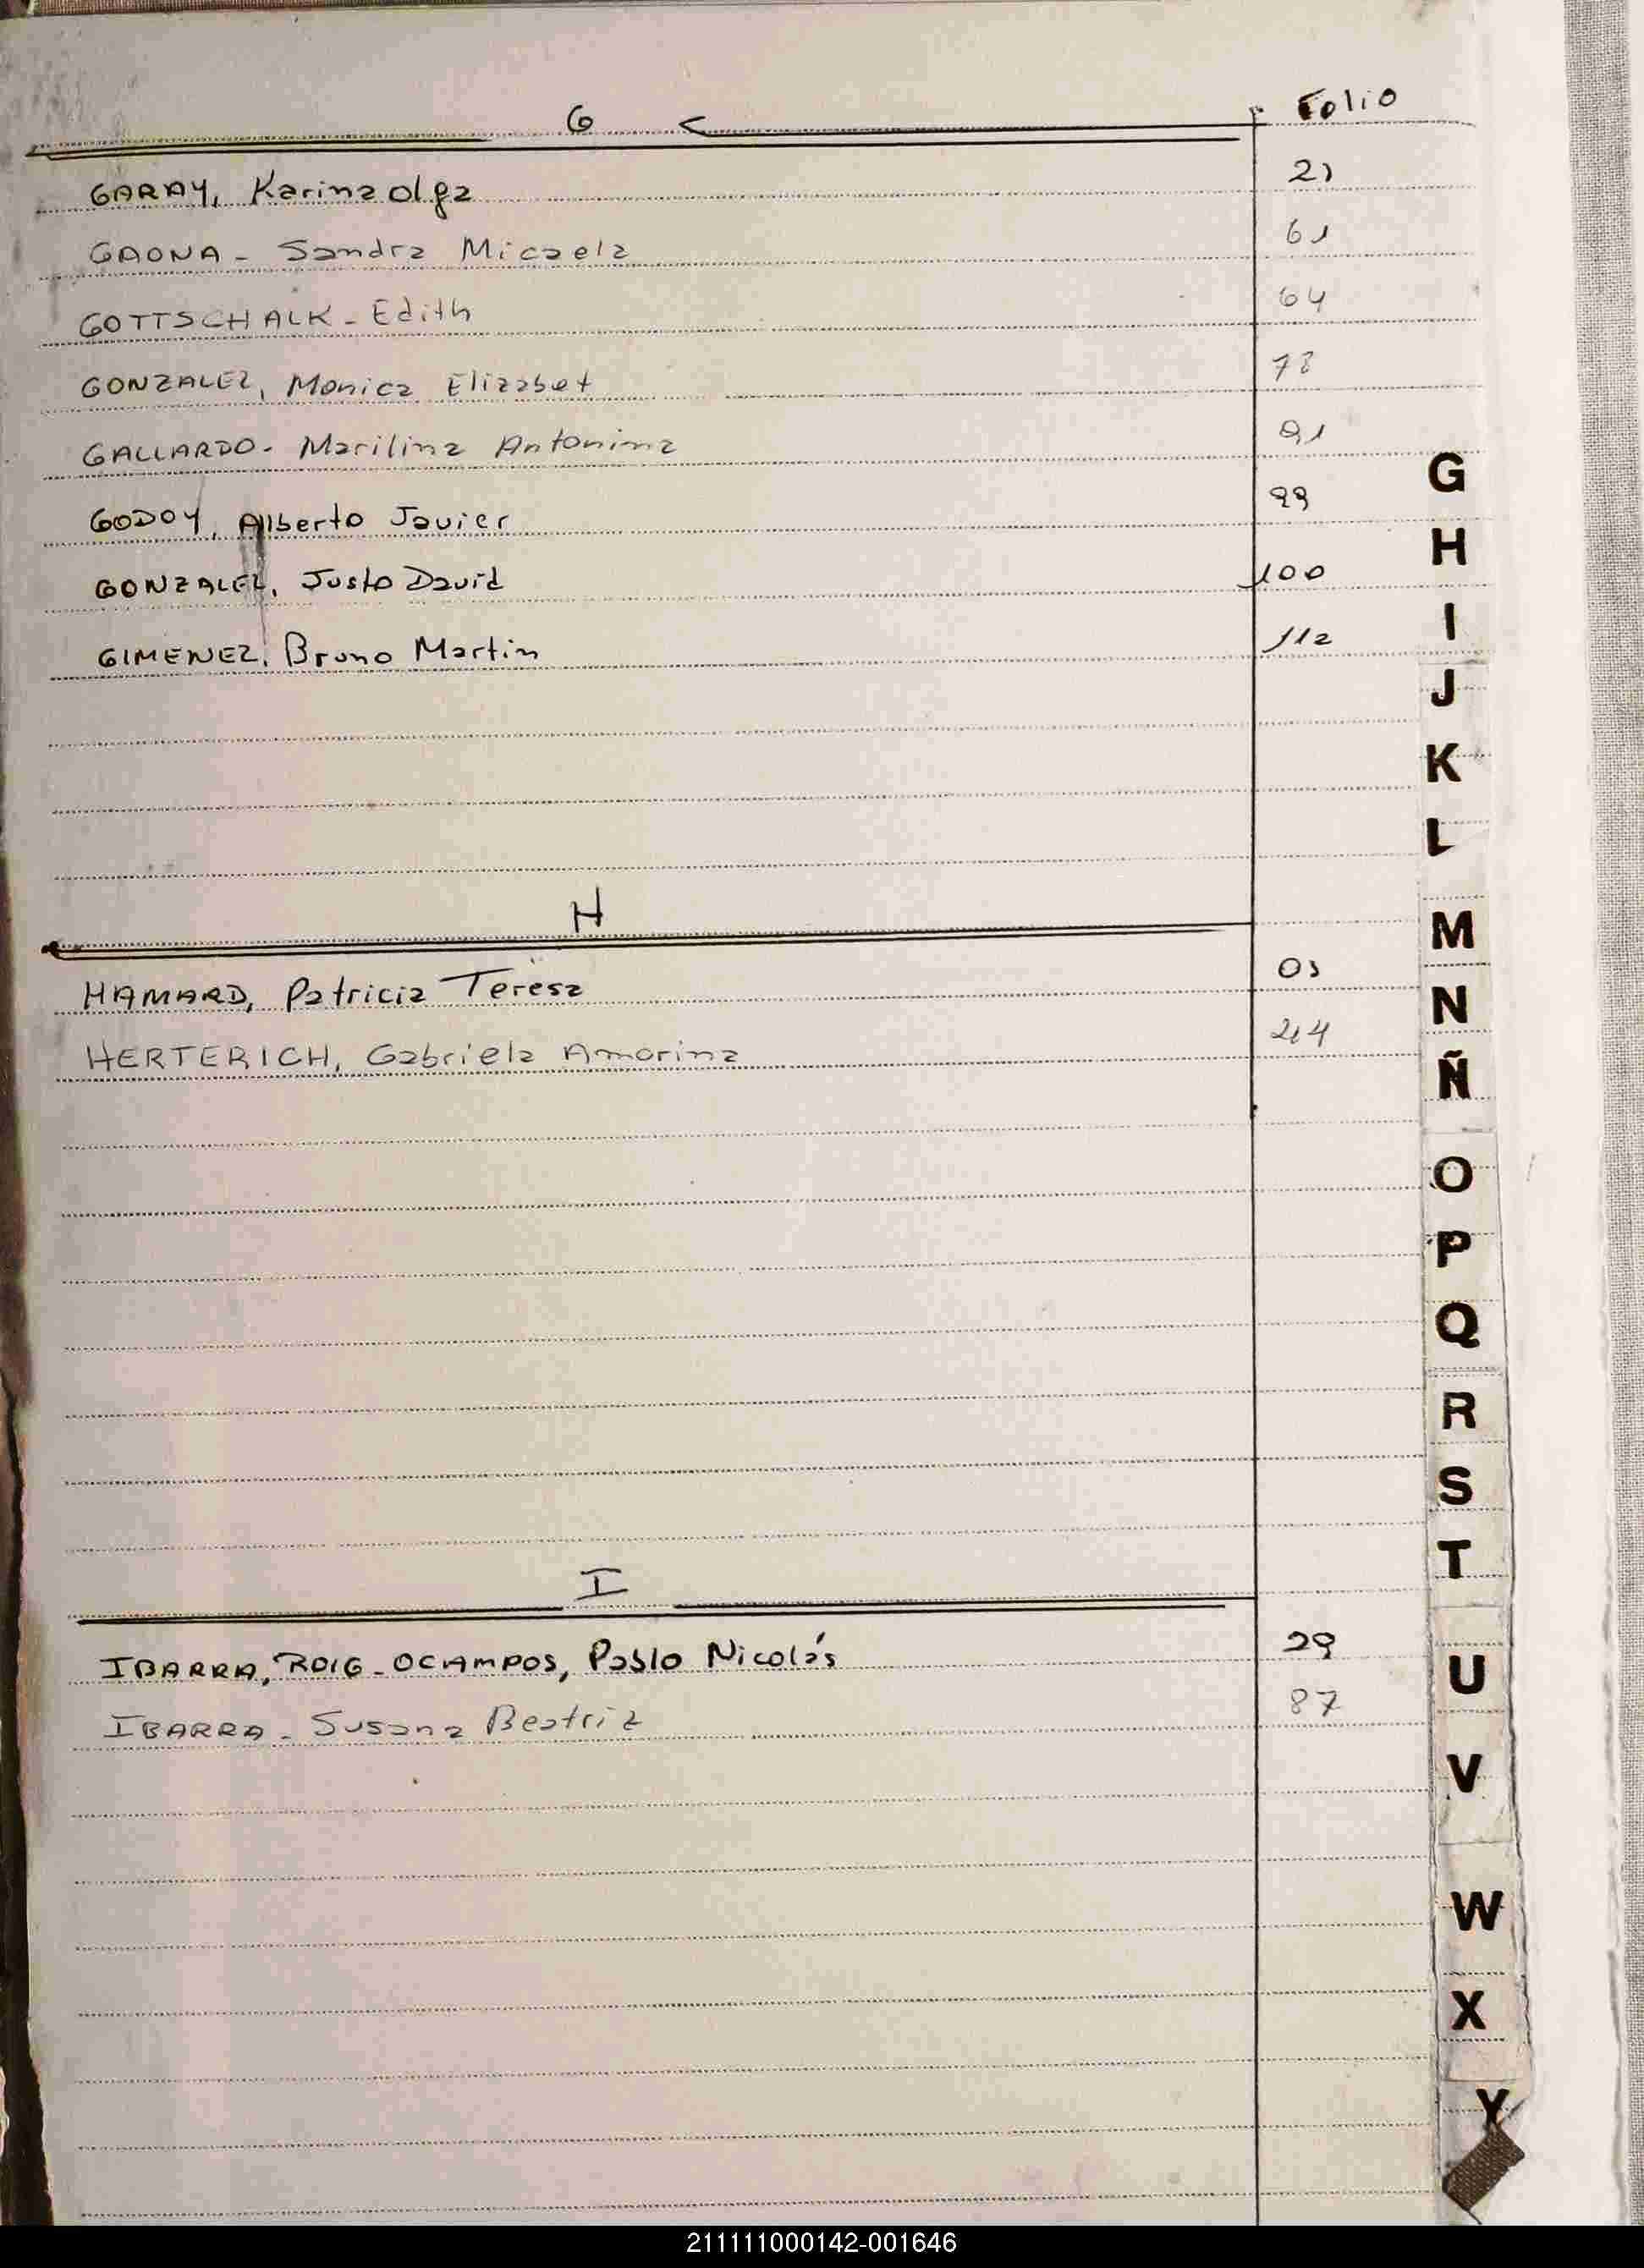 G Folio
GARAY, Karina Olga 21
GAONA - Sandra Micaela 61
GOTTSCHALK - Edith 64
GONZALEZ, Monica Elizabet 78
GALLARDO - Marilina Antonina 91
GODOY, Alberto Javier 99
GONZALEZ, Justo David 100
GIMENEZ, Bruno Martin 112
H
HAMARD, Patricia Teresa
HERTERICH, Gabriela Amorina
I
IBARRA, ROIG - OCAMPOS, Pablo Nicolás 29
IBARRA - Susana Beatriz 87
G
H
I
J
K
L
M
N
Ñ
O
P
Q
R
S
T
U
V
W
X
Y
211111000142-001646